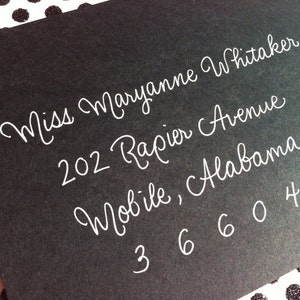 Miss Maryanne Whitaker
202 Rapier Avenue
Mobile, Alabama
3 6 6 0 4